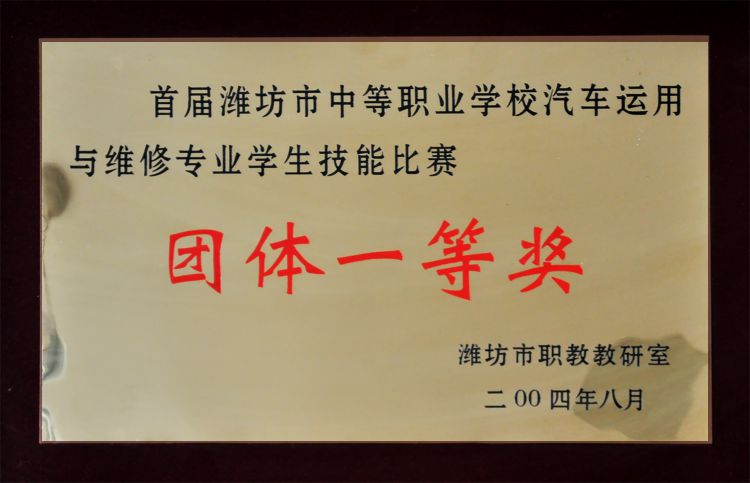 首届潍坊市中等职业学校汽车运用
与维修专业学生技能比赛
团体一等奖
潍坊市职教教研室
二00四年八月